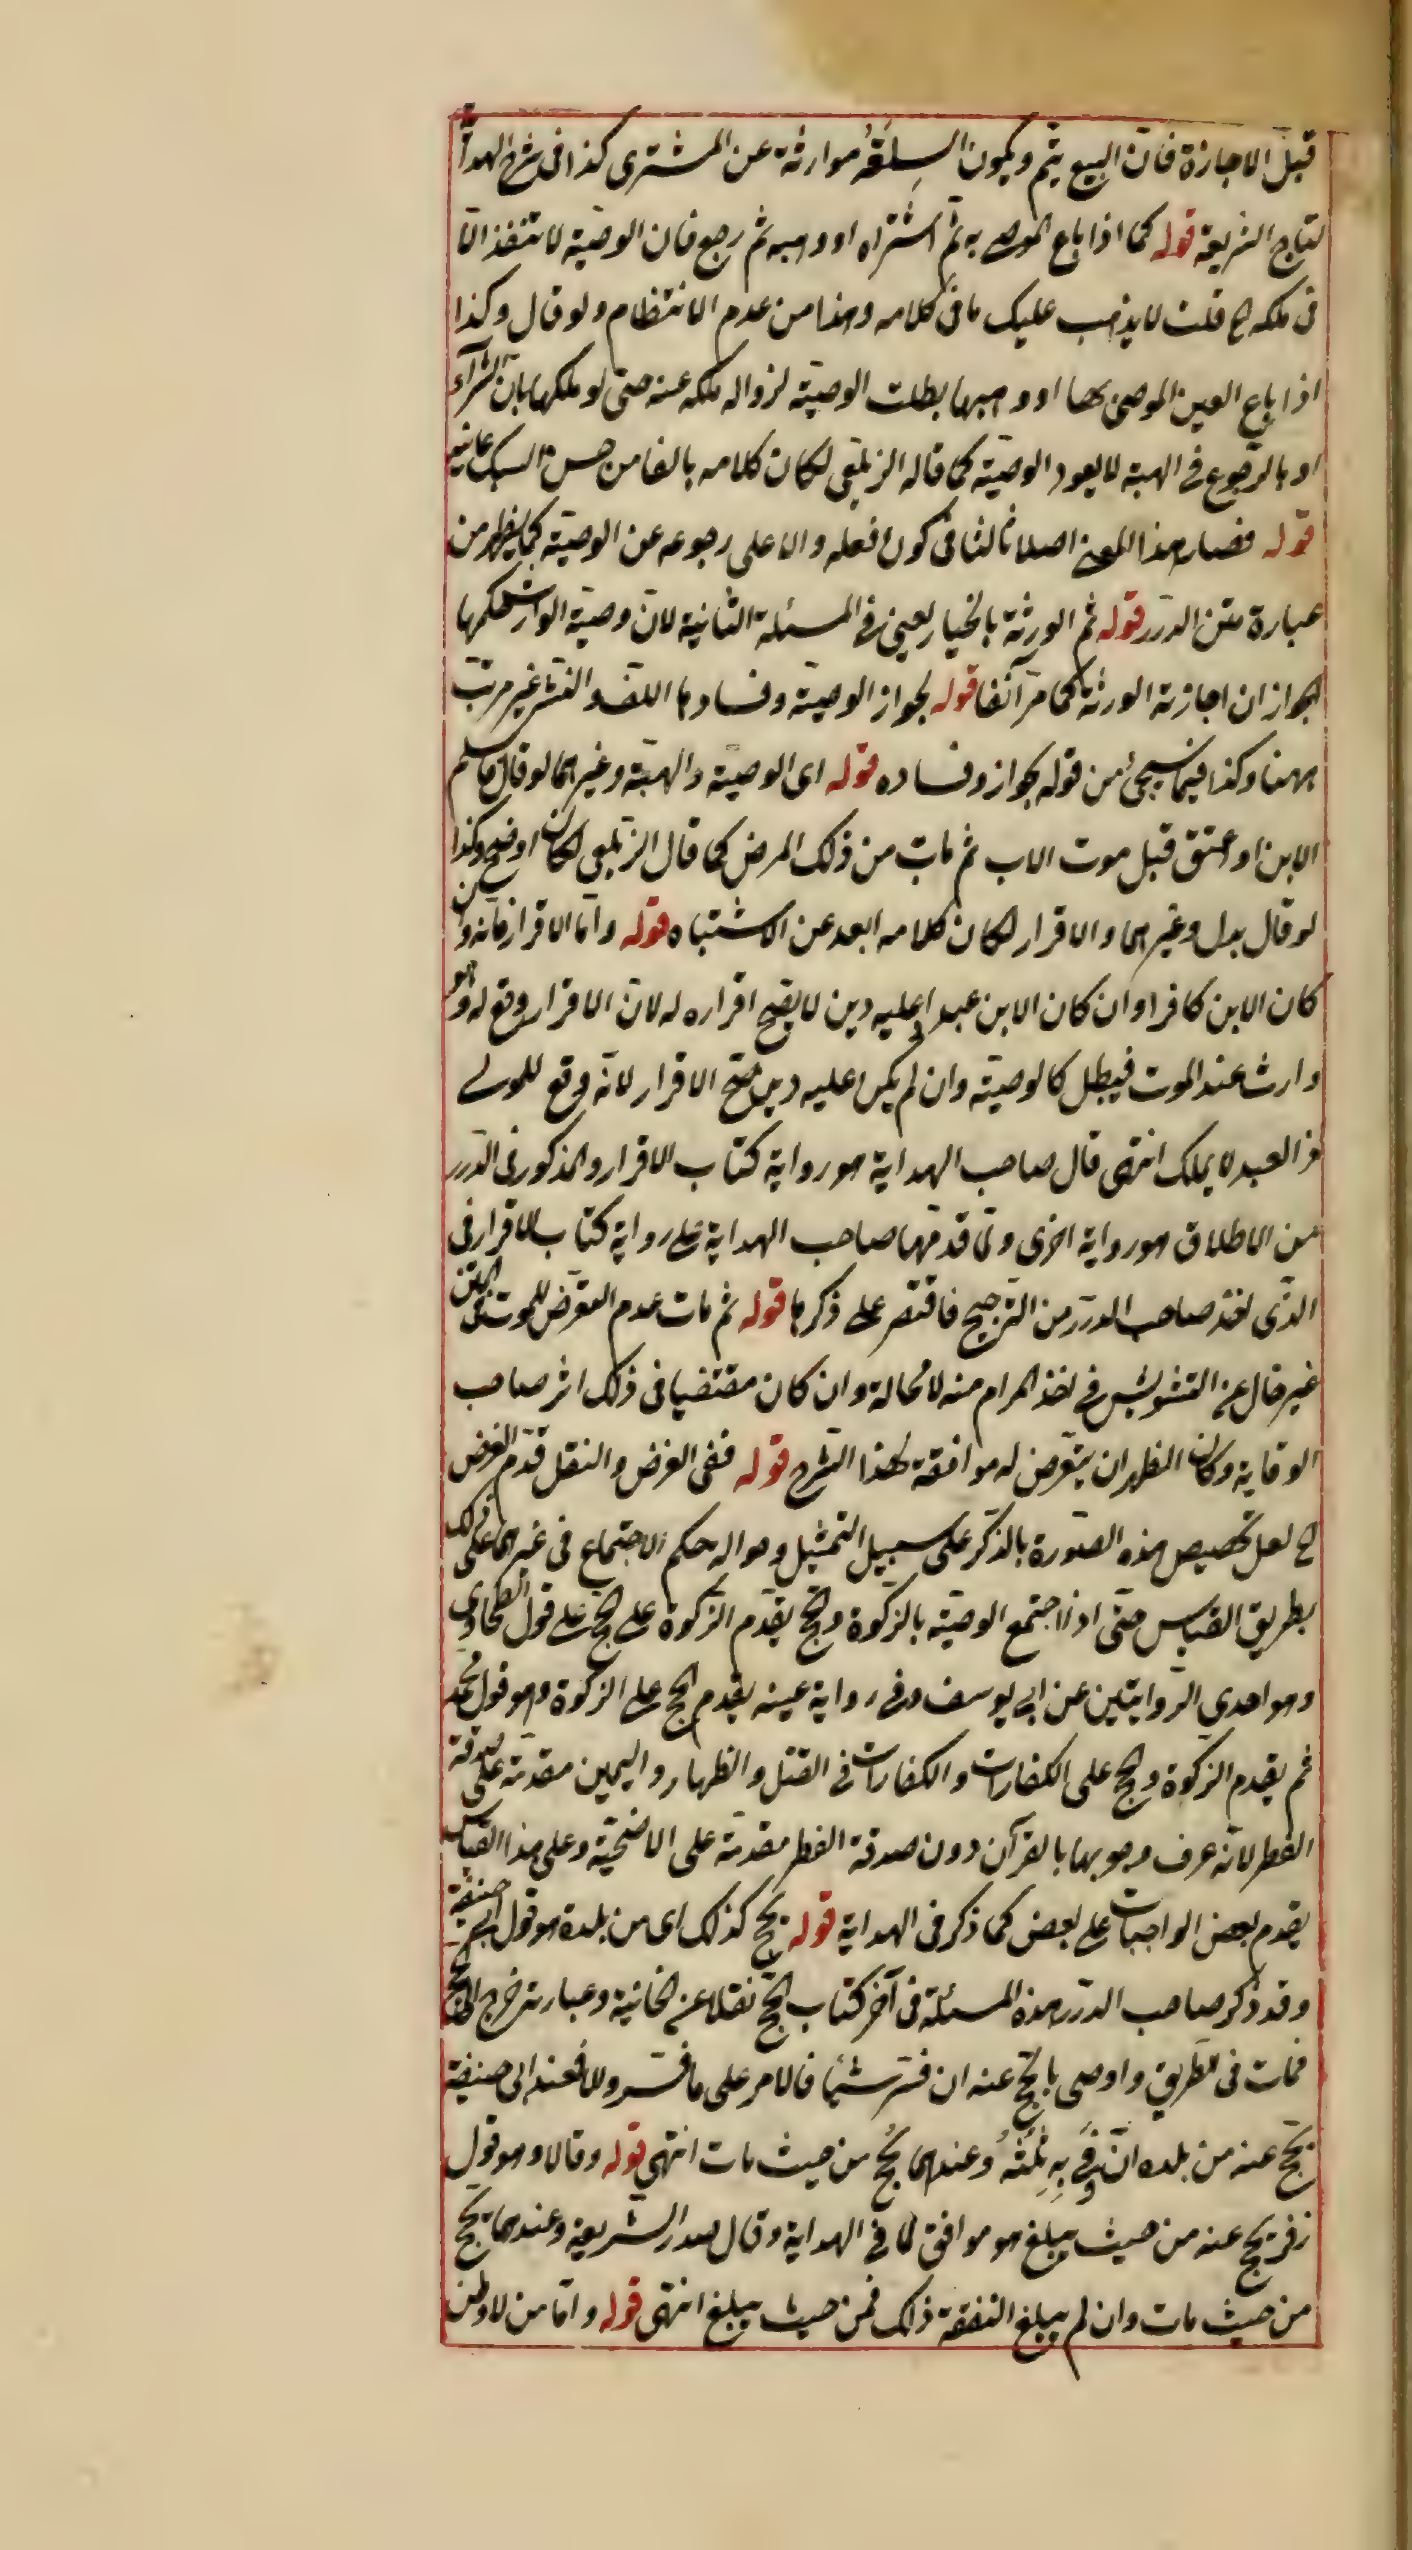 قبل الاجازة فان البيع يتم ويكون السلعة موارثة عن المشترى كذا فى شرح الهداية
لتاج الشريعة قوله كما اذا باع الموصى به ثم اشتراه او وهبه ثم رجع فان الوصية لا تنفذ الا
فى ملكه الخ قلت لا يذهب عليك ما فى كلامه وهذا من عدم الانتظام ولو قال وكذا
اذا باع العين الموصى بها او وهبها بطلت الوصية لزوال ملكه عنه حتى لو ملكها بان الشراء
او بالرجوع فى الهبة لا يعود الوصية كما قاله الزيلعى لكان كلامه بالغا من حسن السبك غايته
قوله فصار هذا المعنى اصلا ثالثا فى كون فعله دالا على رجوعه عن الوصية كما يظهر من
عبارة متن الدرر قوله ثم الورثة بالخيار يعنى فى المسئلة الثانية لان وصية الوارث حكمها
الجواز ان اجازته الورثة كما مر آنفا قوله لجواز الوصية وفسادها اللف والنشر غير مرتب
ههنا وكذا فيما سيجئ من قوله بجواز وفساده قوله اى الوصية والهبة وغيرهما لو قال فاسلم
الابن او عتق قبل موت الاب ثم مات من ذلك المرض كما قال الزيلعى لكان اوضح وكذا
لو قال بدل وغيرهما والاقرار لكان كلامه ابعد عن الاشتباه قوله واما الاقرار فانه وان
كان الابن كافرا وان كان الابن عبدا عليه دين لا يصح اقراره له لان الاقرار وقع له وهو
وارث عند الموت فيبطل كالوصية وان لم يكن عليه دين صح الاقرار لانه وقع للمولى
اذ العبد لا يملك انتهى قال صاحب الهداية هو رواية كتاب الاقرار والمذكور فى الدرر
من الاطلاق هو رواية اخرى ولما قدمها صاحب الهداية على رواية كتاب الاقرار فى المتن
الذى اخذ صاحب الدرر من الترجيح فاقتصر على ذكرها قوله ثم مات عدم التعرض للموت فى
غير خال عن التشويش فى اخذ المرام منه لا محالة وان كان مقتضيا فى ذلك اثر صاحب
الوقاية وكان الاظهر ان يتعرض له موافقة لهذا الشرح قوله ففى الفرض والنفل قدم الفرض
الخ لعل تخصيص هذه الصورة بالذكر على سبيل التمثيل وحواله حكم الاجتماع فى غيرهما على ذلك
بطريق القياس حتى اذا اجتمع الوصية بالزكوة والحج يقدم الزكوة على الحج على قول الطحاوى
وهو احدى الروايتين عن ابى يوسف وفى رواية عينه يقدم الحج على الزكوة وهو قول محمد
ثم يقدم الزكوة والحج على الكفارات والكفارات فى القتل والظهار واليمين مقدمة على صدقة
الفطر لانه عرف وجوبها بالقرآن دون صدقة الفطر مقدمة على الاضحية وعلى هذا القياس
يقدم بعض الواجبات على بعض كما ذكر فى الهداية قوله يحج كذلك اى من بلده هو قول ابى حنيفة
وقد ذكر صاحب الدرر هذه المسئلة فى آخر كتاب الحج نقلا عن الخانية وعبارته خرج الى الحج
فمات فى الطريق واوصى بالحج عنه ان فسر شيئا فالامر على ما فسر والا فعند ابى حنيفة
يحج عنه من بلده ان وفى به ثلثه وعندهما يحج من حيث مات انتهى قوله وقالا وهو قول
زفر يحج عنه من حيث يبلغ هو موافق لما فى الهداية وقال صدر الشريعة وعندهما يحج
من حيث مات وان لم يبلغ النفقة ذلك فمن حيث يبلغ انتهى قوله واما من لا وطن